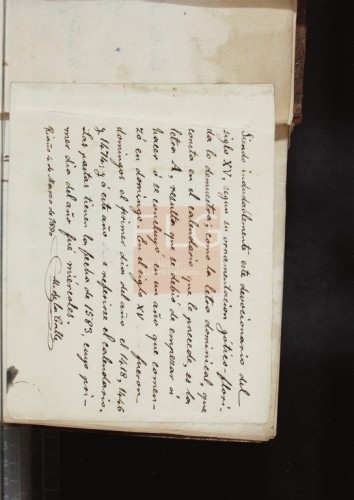 Siendo indudablemente este devocionario del
siglo XV, segun su ornamentacion gótico-flori-
da lo demuestra; como la letra dominical, que
consta en el calendario que le precede, es la
letra A, resulta que se debió de empezar á
hacer ó se concluyó en un año que comen-
zó en domingo. En el siglo XV fueron
domingos el primer dia del año el 1418, 1446
y 1474; y á este año referirse el calendario.
Las pastas tienen la fecha de 1583 cuyo pri-
mer dia del año fué miércoles.
Riaño 4 de Marzo de 1890
M. de la Calle